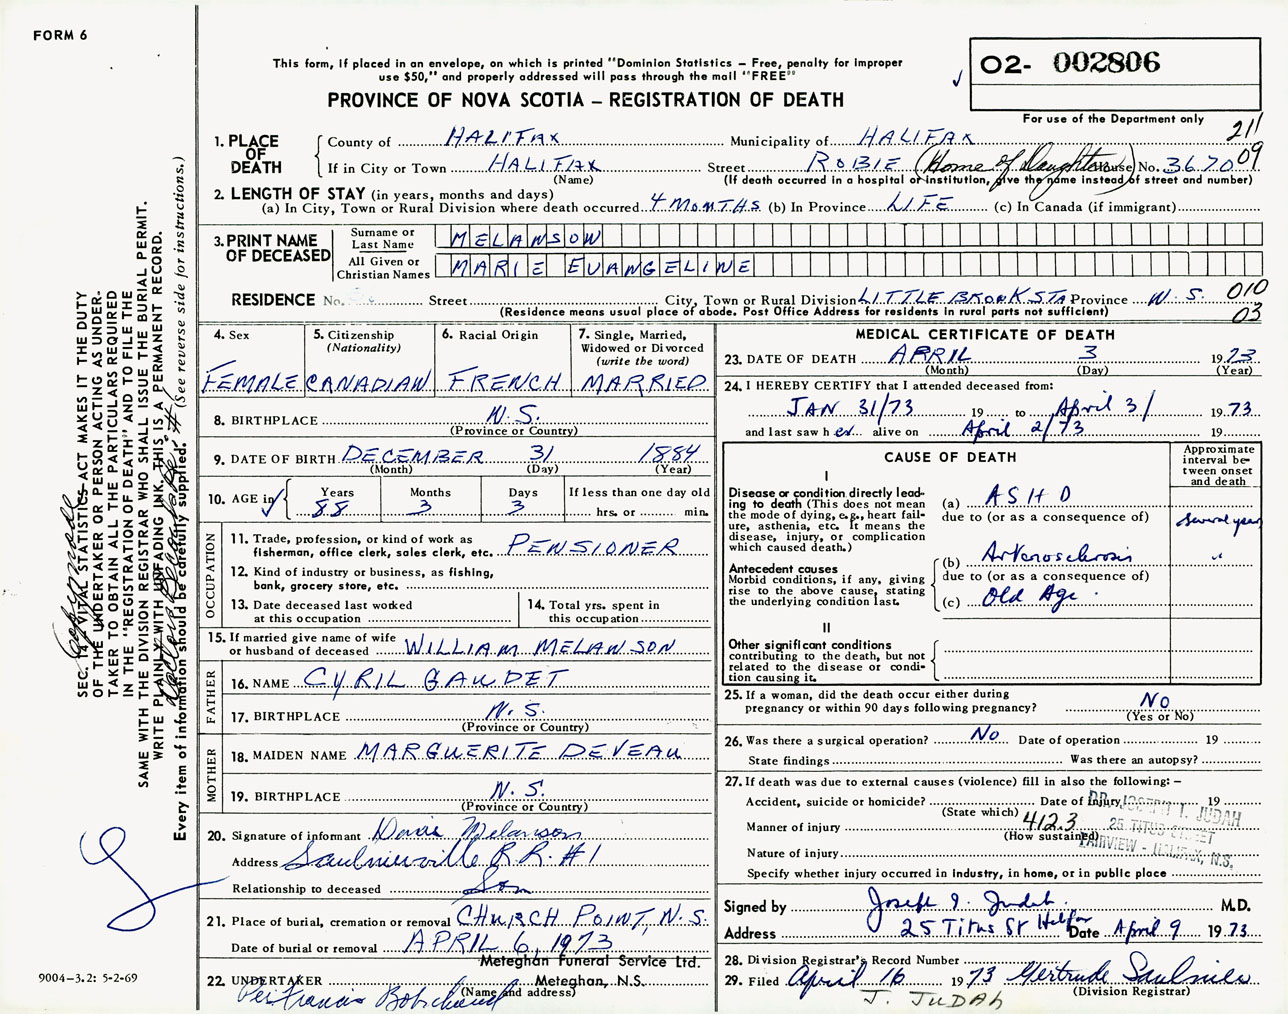 FORM 6
This form, if placed in an envelope, on which is printed "Dominion Statistics – Free, penalty for improper
use $50," and properly addressed will pass through the mail "FREE"
PROVINCE OF NOVA SCOTIA – REGISTRATION OF DEATH
O2- 002806
For use of the Department only
211
09
1. PLACE OF DEATH
County of HALIFAX Municipality of HALIFAX
If in City or Town HALIFAX Street ROBIE (Home of Daughter) House No. 3670
(Name) (If death occurred in a hospital or institution, give the name instead of street and number)
2. LENGTH OF STAY (in years, months and days)
(a) In City, Town or Rural Division where death occurred 4 MONTHS (b) In Province LIFE (c) In Canada (if immigrant)
3. PRINT NAME OF DECEASED
Surname or Last Name MELANSON
All Given or Christian Names MARIE EVANGELINE
RESIDENCE No. Street City, Town or Rural Division LITTLE BROOK STA Province N.S. 010
(Residence means usual place of abode. Post Office Address for residents in rural parts not sufficient) 03
4. Sex
FEMALE
5. Citizenship
(Nationality)
CANADIAN
6. Racial Origin
FRENCH
7. Single, Married,
Widowed or Divorced
(write the word)
MARRIED
8. BIRTHPLACE N.S.
(Province or Country)
9. DATE OF BIRTH DECEMBER 31 1884
(Month) (Day) (Year)
10. AGE in Years Months Days If less than one day old
88 3 3 hrs. or min.
OCCUPATION
11. Trade, profession, or kind of work as
fisherman, office clerk, sales clerk, etc. PENSIONER
12. Kind of industry or business, as fishing,
bank, grocery store, etc.
13. Date deceased last worked
at this occupation
14. Total yrs. spent in
this occupation
15. If married give name of wife
or husband of deceased WILLIAM MELANSON
FATHER
16. NAME CYRIL GAUDET
17. BIRTHPLACE N.S.
(Province or Country)
MOTHER
18. MAIDEN NAME MARGUERITE DEVEAU
19. BIRTHPLACE N.S.
(Province or Country)
20. Signature of informant Melanson
Address Saulnierville R.R. #1
Relationship to deceased Son
21. Place of burial, cremation or removal CHURCH POINT, N.S.
Date of burial or removal APRIL 6, 1973
Meteghan Funeral Service Ltd.
22. UNDERTAKER Meteghan, N.S.
(Name and address)
Per Francis
MEDICAL CERTIFICATE OF DEATH
23. DATE OF DEATH APRIL 3 1973
(Month) (Day) (Year)
24. I HEREBY CERTIFY that I attended deceased from:
JAN 31/73 19 to April 3/ 1973
and last saw her alive on April 2/73 19
CAUSE OF DEATH
Approximate interval between onset and death
I
Disease or condition directly leading to death (This does not mean the mode of dying, e.g., heart failure, asthenia, etc. It means the disease, injury, or complication which caused death.)
(a) ASHD
due to (or as a consequence of) several years
Antecedent causes
Morbid conditions, if any, giving rise to the above cause, stating the underlying condition last.
(b) Arterosclerosis "
due to (or as a consequence of)
(c) Old Age.
II
Other significant conditions
contributing to the death, but not related to the disease or condition causing it.
25. If a woman, did the death occur either during
pregnancy or within 90 days following pregnancy? NO
(Yes or No)
26. Was there a surgical operation? NO Date of operation 19
State findings Was there an autopsy?
27. If death was due to external causes (violence) fill in also the following: –
Accident, suicide or homicide? Date of Injury 19
(State which)
Manner of injury 412.3
(How sustained)
Nature of injury
Specify whether injury occurred in industry, in home, or in public place
DR. JOSEPH I. JUDAH
25 TITUS STREET
FAIRVIEW - HALIFAX, N.S.
Signed by Joseph I. Judah M.D.
Address 25 Titus St Halifax Date April 9 1973
28. Division Registrar's Record Number
29. Filed April 16 1973 Gertrude Saulnier
(Division Registrar)
J. JUDAH
SEC. 14 VITAL STATISTICS ACT MAKES IT THE DUTY
OF THE UNDERTAKER OR PERSON ACTING AS UNDER-
TAKER TO OBTAIN ALL THE PARTICULARS REQUIRED
IN THE "REGISTRATION OF DEATH" AND TO FILE THE
SAME WITH THE DIVISION REGISTRAR WHO SHALL ISSUE THE BURIAL PERMIT.
WRITE PLAINLY WITH UNFADING INK. THIS IS A PERMANENT RECORD.
Every item of information should be carefully supplied. (See reverse side for instructions.)
9004-3.2: 5-2-69